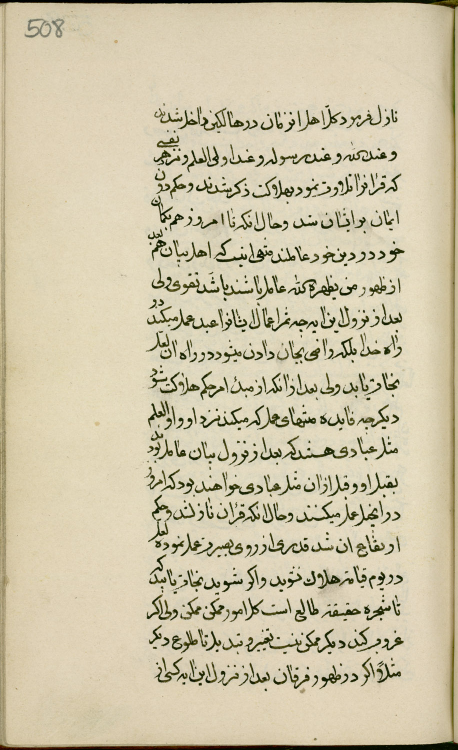 508
نازل فرمود کل اهل ان زمان در هالکین داخل شدند
و عند الله و عند رسوله و عند اولی العلم و نزد هر نفسی
که قران را تلاوت نمود بهلاکت ذکر شدند و حکم دون
ایمان بر ایشان شد و حال انکه تا امروز هم بگمان
خود در دین خود عاملند منتهی اینست که اهل بیان هم
از ظهور من یظهره الله عامل باشند باشد تقوی ولی
بعد از نزول این ایه چه ثمر اعمال ایشانرا عبد عمل میکند در
راه خدا بلکه راضی بجان دادن میشود در راه ان لعل
نجات یابد ولی بعد از انکه از مبدء امر حکم هلاکت شود
دیگر چه فایده منتهای عمل که میکند نزد او و اولو العلم
مثل عبادی هستند که بعد از نزول بیان عامل بودند
بقبل او و قبل ازان مثل عبادی خواهند بود که امروز
در انجیل عمل میکنند و حال انکه قران نازل شد و حکم
ارتفاع ان شد قدری از روی بصیرت عمل نموده لعل
در یوم قیامة هلاک نشوید و اگر شوید نجات یابید که
تا شجره حقیقة طالع است کل امور ممکن ممکن ولی اگر
غروب کند دیگر ممکن نیست تغییر و تبدیل تا طلوع دیگر
مثلا اگر در ظهور فرقان بعد از نزول این ایه کسی از